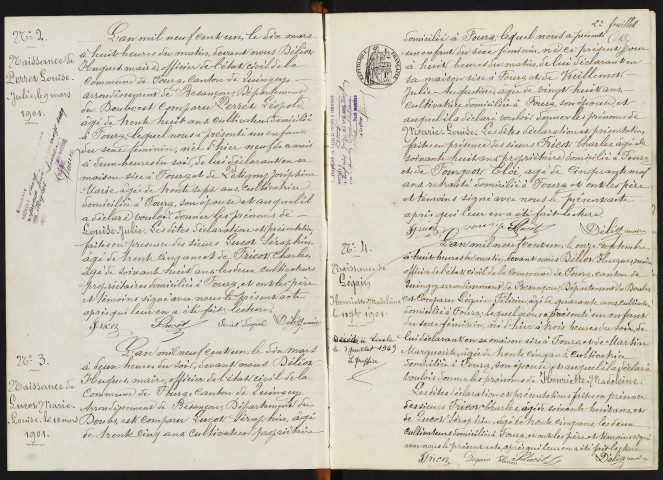 N° 2.
Naissance de
Perret Louise-
Julie, le 9 mars
1901.
L'an mil neuf cent un, le dix mars
à huit heures du matin, devant nous Délioz
Huguet maire, officier de l'état civil de la
Commune de Fourg, Canton de Quingey,
arrondissement de Besançon, Département
du Doubs est Comparu Perret Léopold,
âgé de trente huit ans, cultivateur domicilié
à Fourg, lequel nous a présenté un enfant
du sexe féminin, né d'hier neuf de mois
à deux heures du soir, de lui déclarant en sa
maison sise à Fourg et de Joséphine
Marie, âgée de trente sept ans, Cultivatrice
domiciliée à Fourg, son épouse et auquel il
a déclaré vouloir donner les prénoms de
Louise Julie. Les dites déclaration et présentation
faites en présence des sieurs Lucot Séraphin
âgé de trente cinq ans et de Tricot Charles
âgé de soixante huit ans, les deux cultivateurs
propriétaires domiciliés à Fourg, et ont les père
et témoins signé avec nous le présent acte
après qu'il leur en a été fait lecture.
Tricot Lucot Perret Délioz maire
N° 3.
Naissance de
Lucot Marie-
Louise, le 10 mars
1901.
L'an mil neuf cent un, le dix mars
à deux heures du soir, devant nous Délioz
Huguet maire, officier de l'état civil de la
Commune de Fourg, Canton de Quingey,
Arrondissement de Besançon, Département du
Doubs est comparu Lucot Séraphin, âgé
de trente cinq ans, cultivateur propriétaire
2e feuillet
domicilié à Fourg, lequel nous a présenté
un enfant du sexe féminin, né ce présent jour
à huit heures du matin, de lui déclarant en
sa maison sise à Fourg et de Vuillemot
Julie Augustine, âgée de vingt huit ans,
cultivatrice domiciliée à Fourg, son épouse, et
auquel il a déclaré vouloir donner les prénoms de
Marie-Louise. Les dites déclaration et présentation
faites en présence des sieurs Tricot Charles âgé de
soixante huit ans, propriétaire domicilié à Fourg
et de Éloi, âgé de Cinquante neuf
ans retraité domicilié à Fourg et ont les père
et témoins signé avec nous le présent acte
après qu'il leur en a été fait lecture
Tricot Lucot Délioz maire
N° 4.
Naissance de
Légain
Henriette Madeleine
le 10 7bre 1901.
Décédée à
le 3 juillet 1949
Le greffier
L'an mil neuf cent un le onze septembre
à huit heures du matin, devant nous Délioz Huguet, maire
officier de l'état civil de la commune de Fourg, canton de
Quingey, arrondissement de Besançon, Département du Doubs
est Comparu Légain Félicien, âgé de quarante ans, cultivateur
domicilié à Fourg, lequel nous a présenté un enfant
du sexe féminin, né d'hier à trois heures du soir, de
lui déclarant en sa maison sise à Fourg et de Martin
Marguerite, âgée de trente cinq ans, cultivatrice
domiciliée à Fourg, son épouse et auquel il a déclaré
vouloir donner les prénoms de Henriette-Madeleine.
Les dites déclaration et présentation faites en présence
des sieurs Tricot Charles, âgé de soixante huit ans, et
de Lucot Séraphin âgé de trente cinq ans les deux
cultivateurs domiciliés à Fourg, et ont les père et témoins signé
avec nous le présent acte, après qu'il leur en a été fait lecture
Tricot Légain Lucot Délioz maire